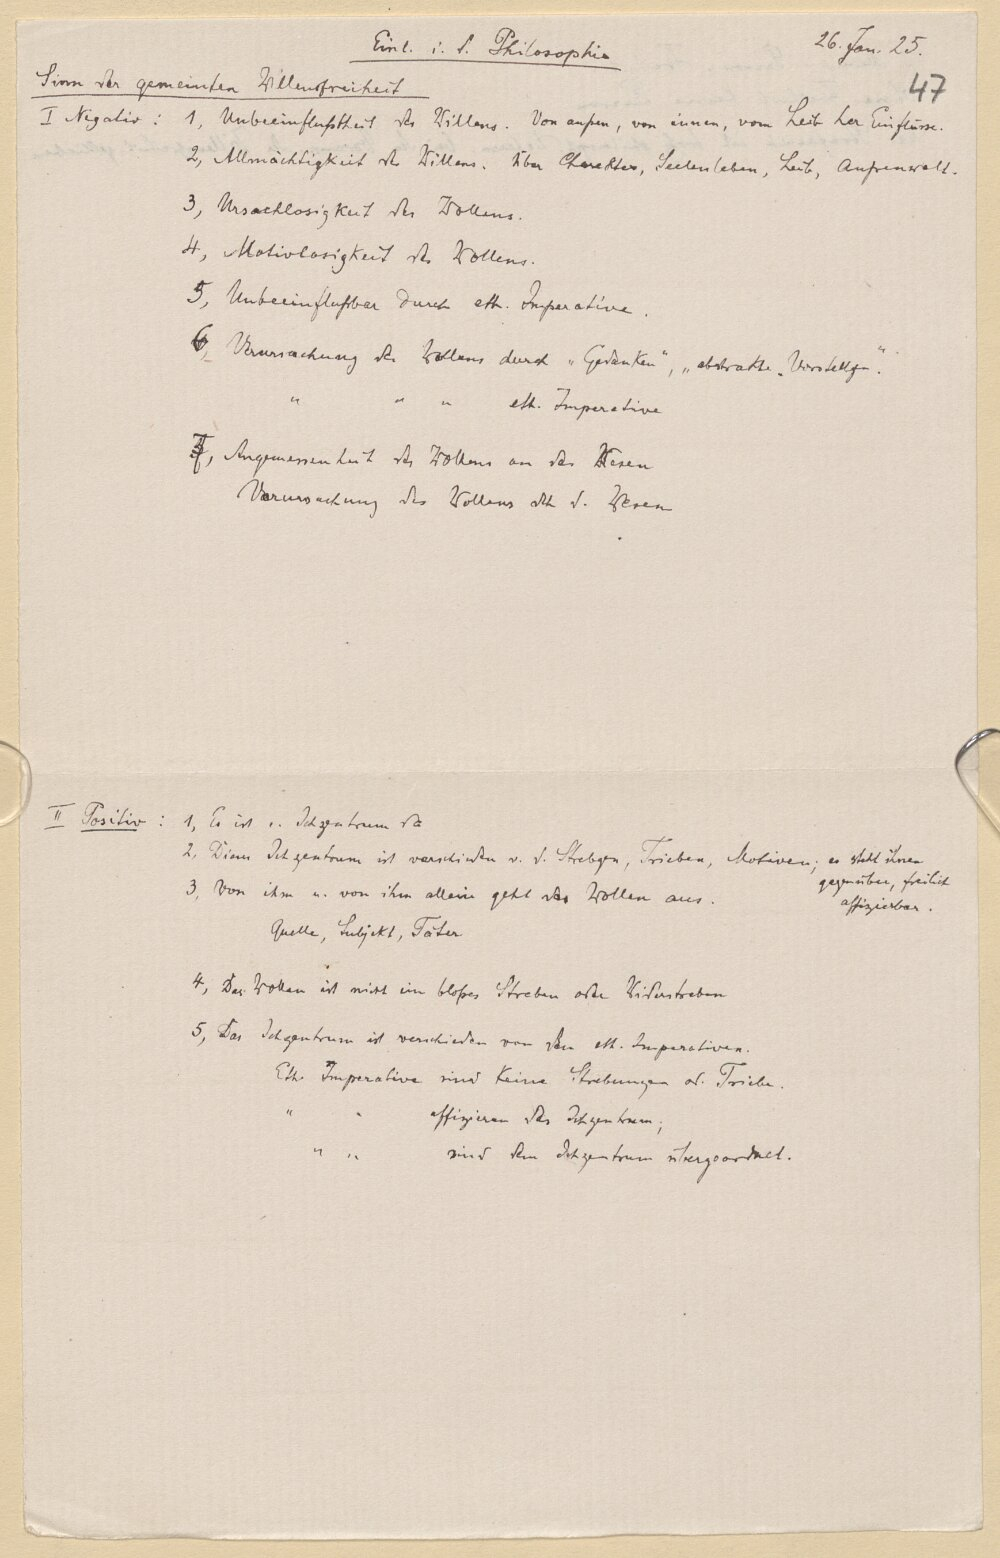 Einl. i. d. Philosophie
26. Jan. 25.
47
Sinn der gemeinten Willensfreiheit
I Negativ : 1, Unbeeinflußtheit des Willens. Von außen, von innen, vom Leib her Einflüsse.
2, Allmächtigkeit des Willens. Über Charakter, Seelenleben, Leib, Außenwelt.
3, Ursachlosigkeit des Wollens.
4, Motivlosigkeit des Wollens.
5, Unbeeinflußbar durch eth. Imperative.
6, Verursachung des Wollens durch „Gedanken“, „abstrakte Vorstellgn“.
" " " eth. Imperative
7, Angemessenheit des Wollens an das Wesen
Verursachung des Wollens dch d. Wesen
II Positiv : 1, Es ist e. Ichzentrum da
2, Dieses Ichzentrum ist verschieden v. d. Strebgen, Trieben, Motiven; es steht ihnen
gegenüber, freilich
affizierbar.
3, Von ihm u. von ihm allein geht das Wollen aus.
Quelle, Subjekt, Täter
4, Das Wollen ist nicht ein bloßes Streben oder Widerstreben
5, Das Ichzentrum ist verschieden von den eth. Imperativen.
Eth. Imperative sind keine Strebungen od. Triebe.
" " affizieren das Ichzentrum;
" " sind dem Ichzentrum übergeordnet.